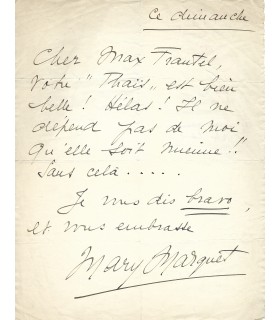 Ce dimanche
Cher Max Frantel,
Votre "Thaïs" est bien
belle ! Hélas ! Il ne
dépend pas de moi
qu'elle soit mienne !!
Sans cela .....
Je vous dis bravo,
et vous embrasse
Mary Marquet